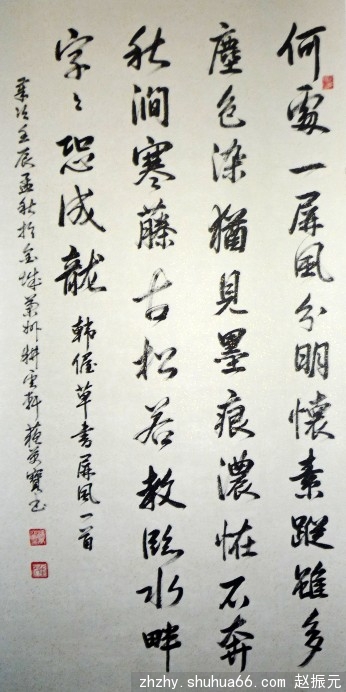 何處一屏風分明懷素蹤雖多
塵色染猶見墨痕濃怪石奔
秋澗寒藤古松若教臨水畔
字〻恐成龍 韓偓草書屏風一首
歲次壬辰孟秋於金城蘭州耕雲軒
zhzhy.shuhua66.com 赵振元